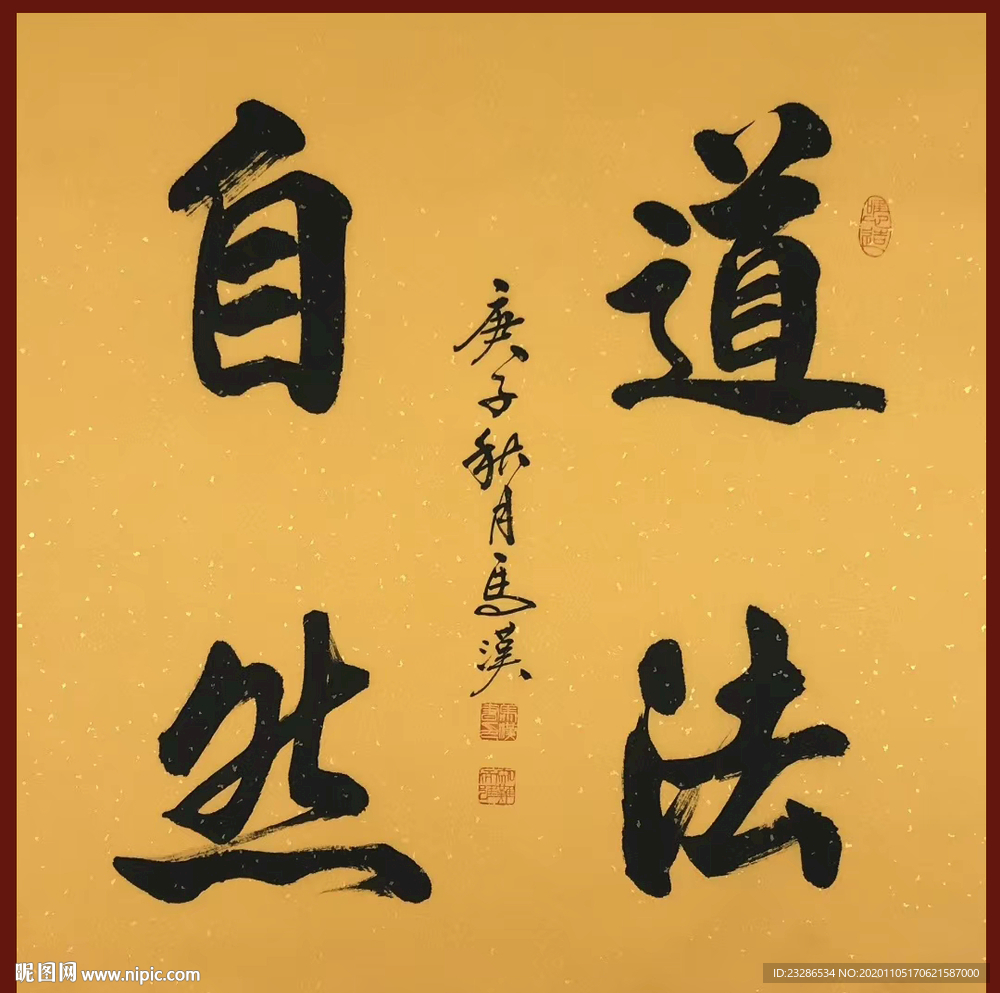 道法
自然
庚子秋月馬漢
昵图网 www.nipic.com
ID:23286534 NO:20201105170621587000